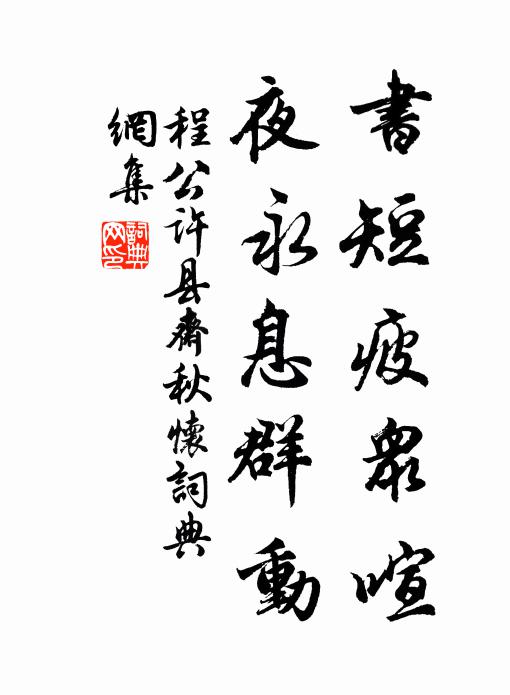 書短疲眾喧
夜永息群動
程公许县齋秋懷詞典
網集
詞典
网印